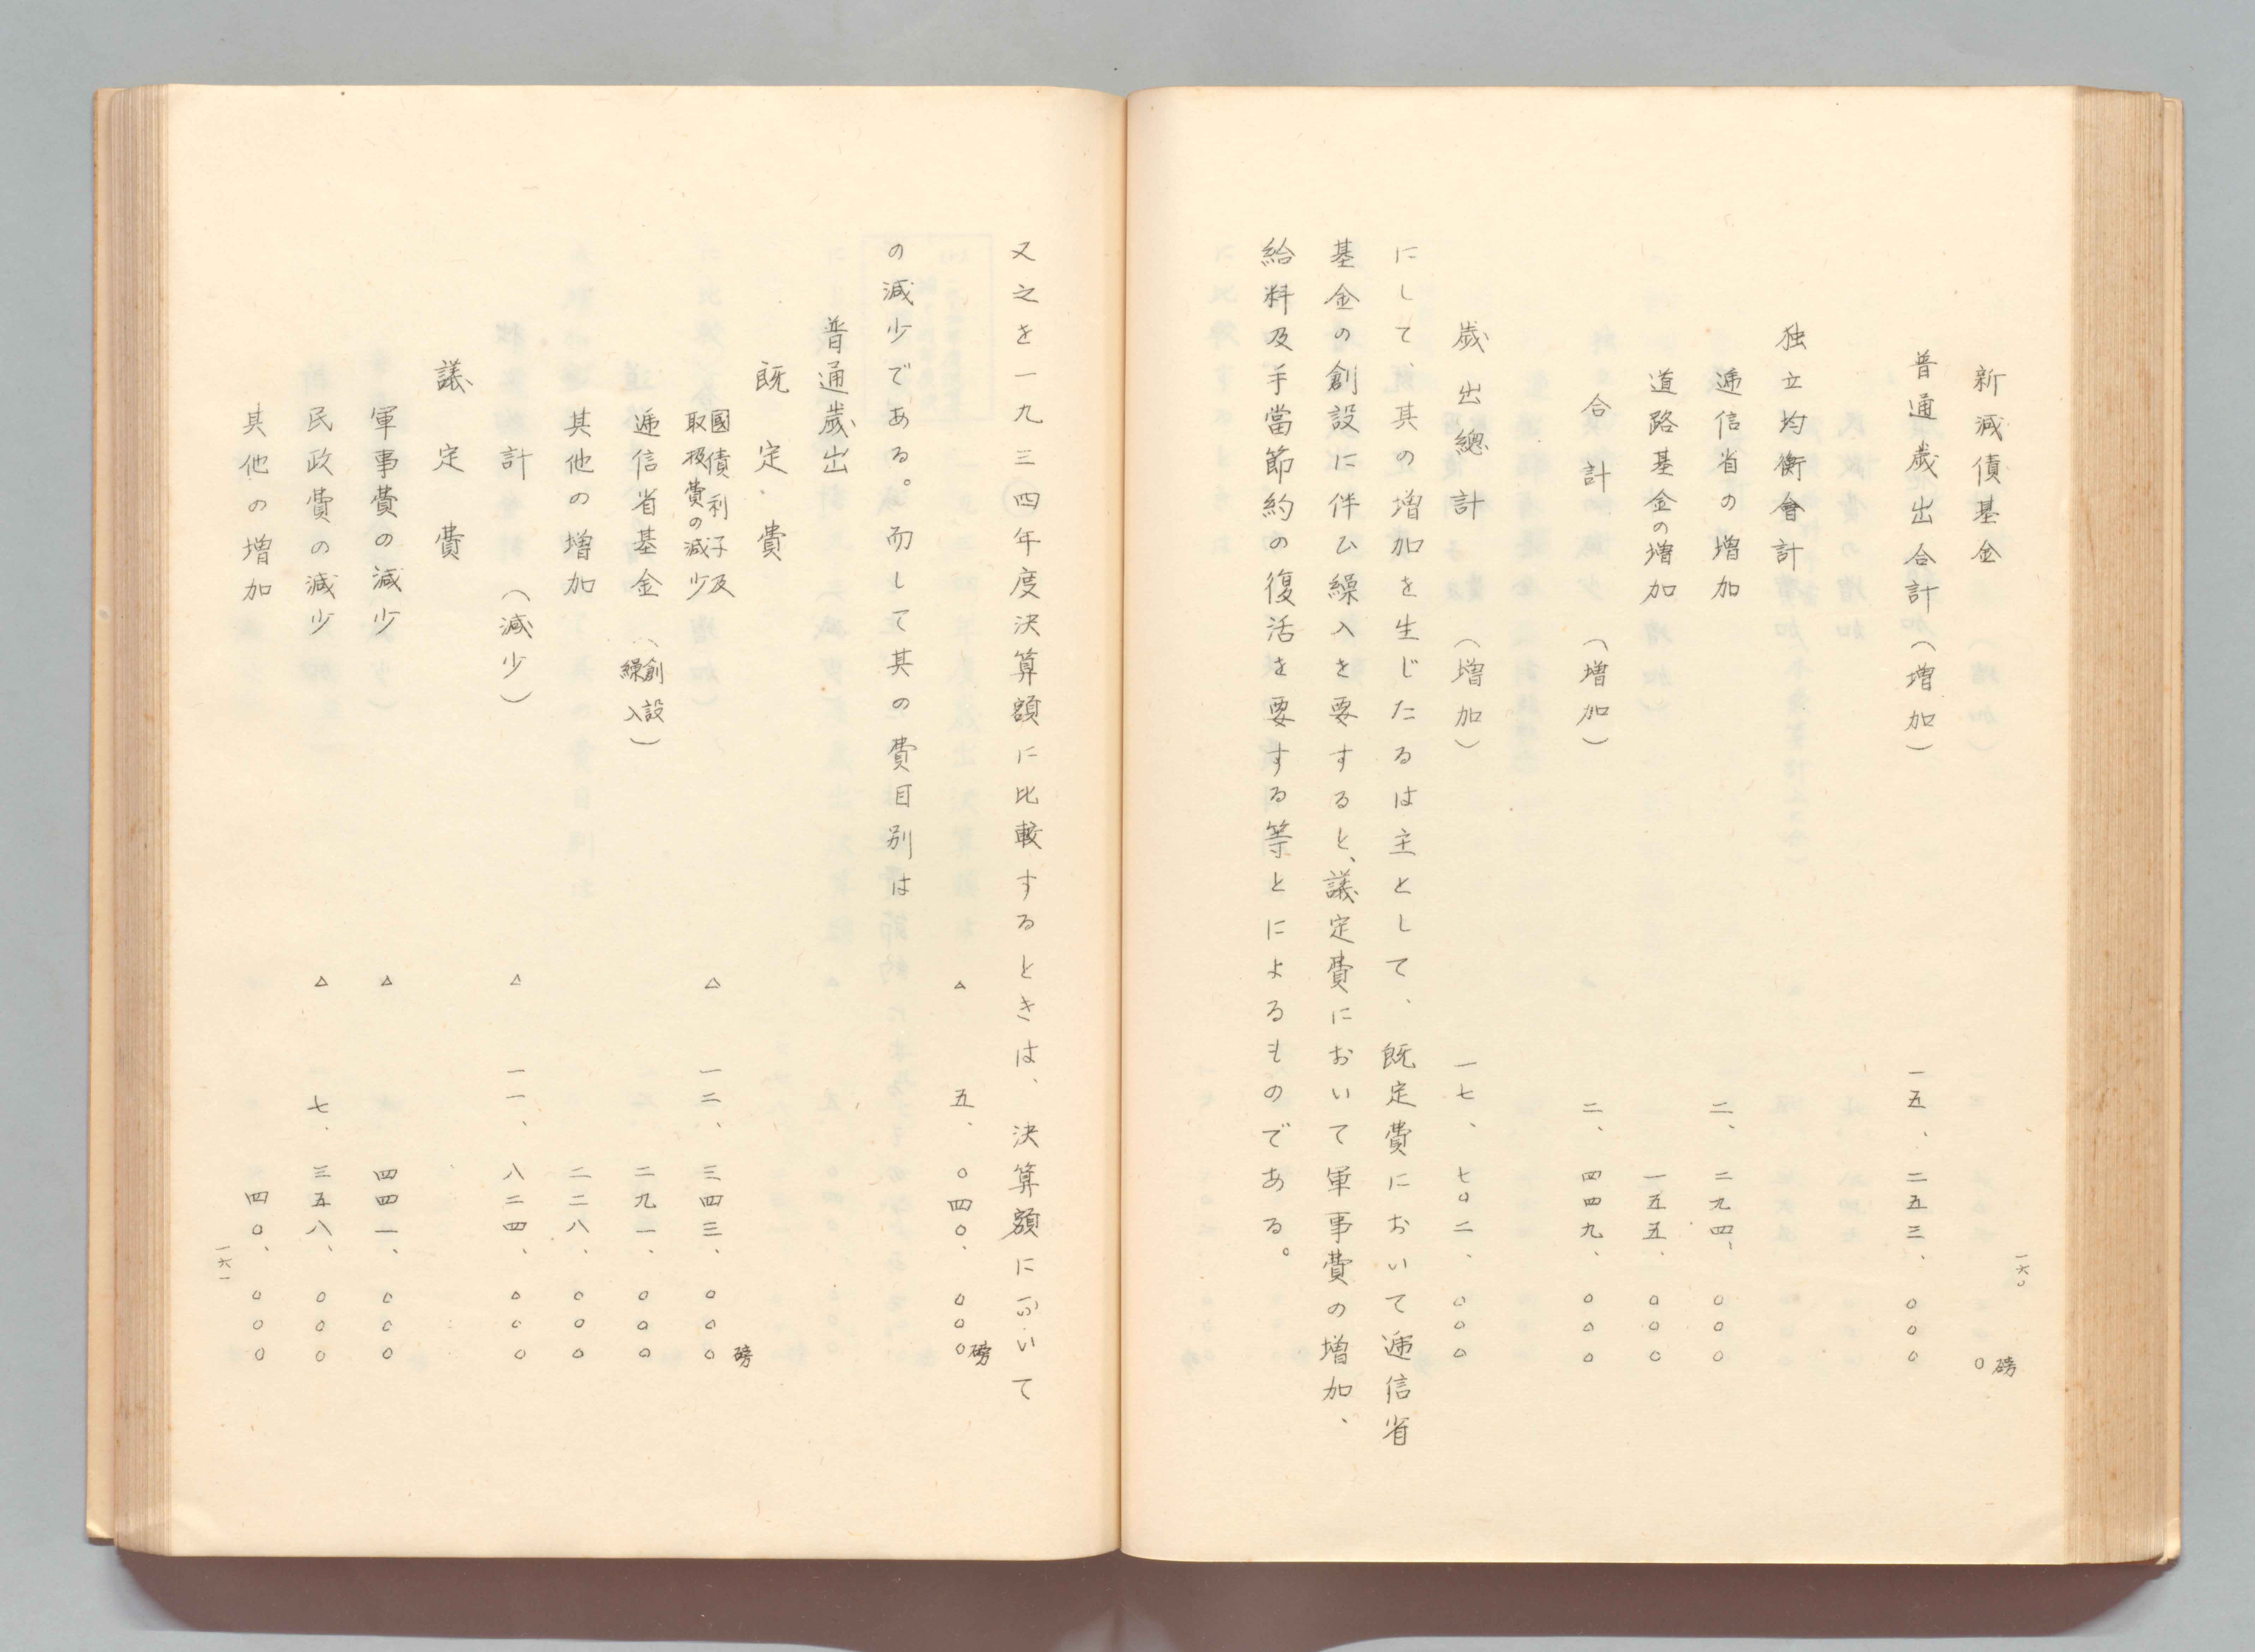 新減債基金　〇磅
普通歳出合計（増加）　一五、二五三、〇〇〇
独立均衡會計
逓信省の増加　二、二九四、〇〇〇
道路基金の増加　一五五、〇〇〇
合計（増加）　二、四四九、〇〇〇
歳出總計（増加）　一七、七〇二、〇〇〇
にして、其の増加を生じたるは主として、既定費において逓信省
基金の創設に伴ひ繰入を要すると、議定費において軍事費の増加、
給料及手當節約の復活を要する等とによるものである。
一六〇
又之を一九三四年度決算額に比較するときは、決算額において
△五、〇四〇、〇〇〇磅
の減少である。而して其の費目別は
普通歳出
既定費
國債利子及取扱費の減少　△一二、三四三、〇〇〇磅
逓信省基金（創設繰入）　二九一、〇〇〇
其他の増加　二二八、〇〇〇
計（減少）　△一一、八二四、〇〇〇
議定費
軍事費の減少　△四四一、〇〇〇
民政費の減少　△七、三五八、〇〇〇
其他の増加　四〇、〇〇〇
一六一